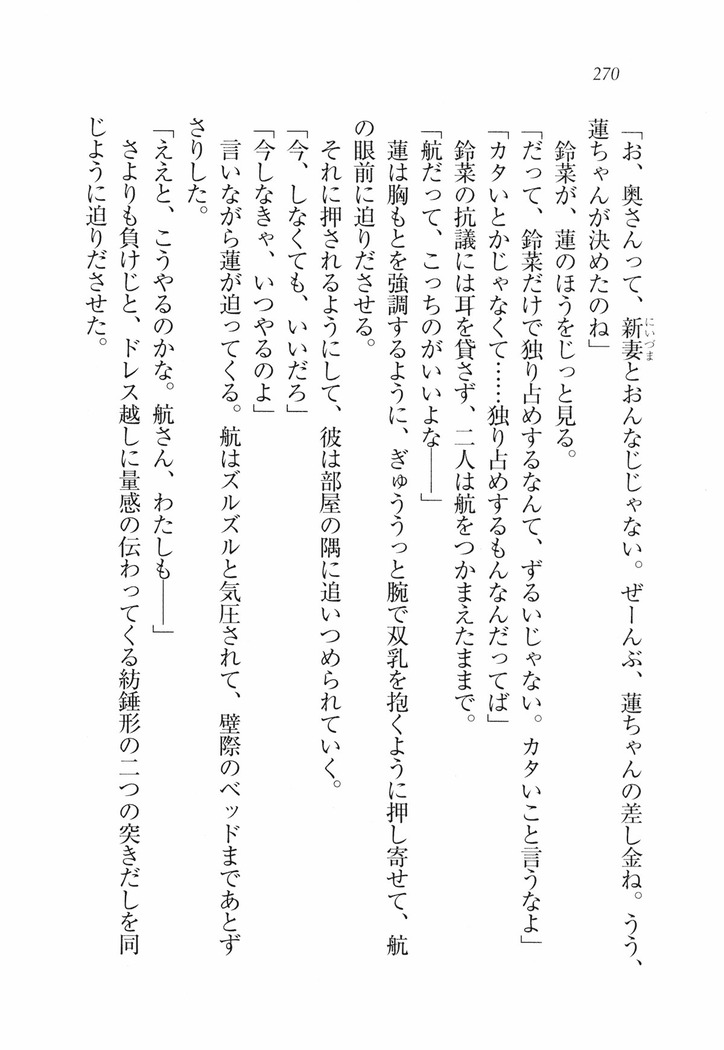 270
「お、奥さんって、新妻とおんなじじゃない。ぜーんぶ、蓮ちゃんの差し金ね。うう、
にいづま
蓮ちゃんが決めたのね」
鈴菜が、蓮のほうをじっと見る。
「だって、鈴菜だけで独り占めするなんて、ずるいじゃない。カタいこと言うなよ」
「カタいとかじゃなくて……独り占めするもんなんだってば」
鈴菜の抗議には耳を貸さず、二人は航をつかまえたままで。
「航だって、こっちのがいいよな――」
蓮は胸もとを強調するように、ぎゅううっと腕で双乳を抱くように押し寄せて、航
の眼前に迫りださせる。
それに押されるようにして、彼は部屋の隅に追いつめられていく。
「今、しなくても、いいだろ」
「今しなきゃ、いつやるのよ」
言いながら蓮が迫ってくる。航はズルズルと気圧されて、壁際のベッドまであとず
さりした。
「ええと、こうやるのかな。航さん、わたしも――」
さよりも負けじと、ドレス越しに量感の伝わってくる紡錘形の二つの突きだしを同
じように迫りださせた。